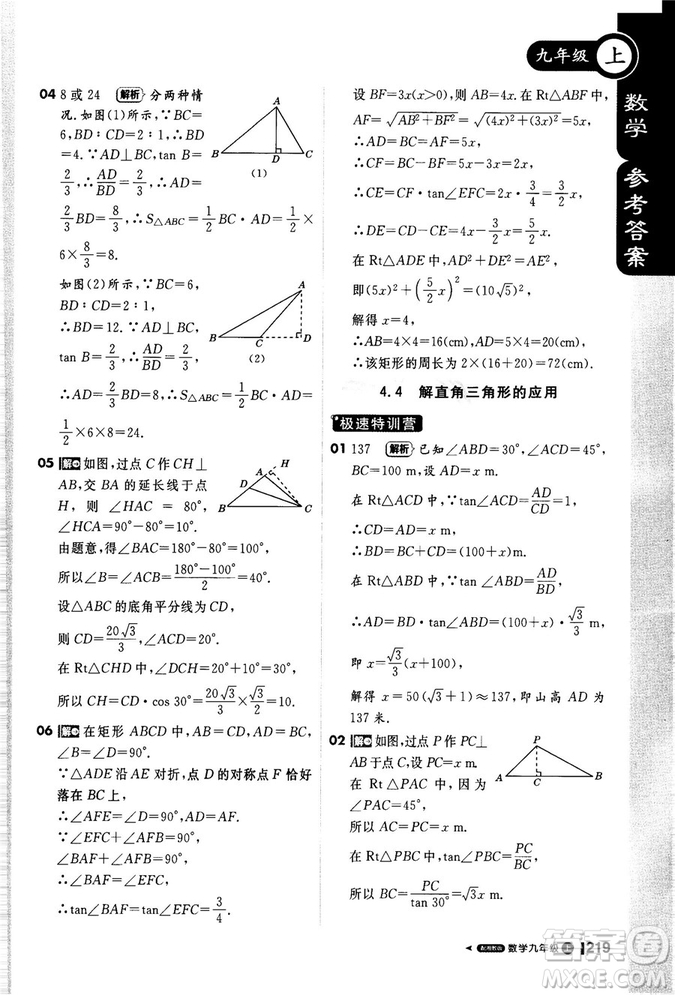 九年级 上
数学 参考答案
04 8 或 24 解析 分两种情
况. 如图(1)所示,∵BC=
6,BD∶CD=2∶1,∴BD
=4.∵AD⊥BD,tan B=
2/3,∴AD/BD=2/3,∴AD=
2/3BD=8/3,∴S△ABC=1/2×
6×8/3=8.
A
B D C
(1)
如图(2)所示,∵BC=6,
BD∶CD=2∶1,
∴BD=12.∵AD⊥BD,
tan B=AD/BD=2/3,
∴AD=2/3BD=8,∴S△ABC=
1/2×6×8=24.
A
B C D
(2)
05 解 如图,过点 C 作 CH⊥
AB,交 BA 的延长线于点
H,则∠HAC=80°,
∠HCA=90°-80°=10°.
由题意,得∠BAC=180°-80°=100°,
所以∠B=(180°-100°)/2=40°.
设△ABC 的底角平分线为 CD,
则 CD=20√3/3,∠DCA=20°.
在 Rt△CHD 中,∠DCH=20°+10°=30°,
所以 CH=CD·cos 30°=20√3/3×√3/2=10.
A H
D
B C
06 解 在矩形 ABCD 中,AB=CD,AD=BC,
∠B=∠D=90°.
∵△ADE 沿 AE 对折,点 D 的对称点 F 恰好
落在 BC 上,
∴∠AFE=∠D=90°,AD=AF.
∵∠EFC+∠AFB=90°,
∠BAF+∠AFB=90°,
∴∠BAF=∠EFC,
∴tan∠BAF=tan∠EFC=3/4.
设 BF=3x(x>0),则 AB=4x.在 Rt△ABF 中,
AF=√(AB²+BF²)=√((4x)²+(3x)²)=5x,
∴AD=BC=AF=5x,
∴CF=BC-BF=5x-3x=2x,
∴CE=CF·tan∠EFC=2x·3/4=3/2x,
∴DE=CD-CE=4x-3/2x=5/2x.
在 Rt△ADE 中,AD²+DE²=AE²,
即(5x)²+(5/2x)²=(10√5)²,
解得 x=4,
∴AB=4×4=16(cm),AD=5×4=20(cm),
∴该矩形的周长为 2×(16+20)=72(cm).
4.4 解直角三角形的应用
极速特训营
01 137 解析 已知∠ABD=30°,∠ACD=45°,
BC=100 m,设 AD=x m,
在 Rt△ACD 中,∵tan∠ACD=AD/CD=1,
∴CD=AD=x m,
∴BD=BC+CD=(100+x)m.
在 Rt△ABD 中,∵tan∠ABD=AD/BD,
∴AD=BD·tan∠ABD=(100+x)·√3/3,
即 x=√3/3(100+x),
解得 x=50(√3+1)≈137,即山高 AD 为
137 米.
02 解 如图,过点 P 作 PC⊥
AB 于点 C,设 AC=x m,
在 Rt△PAC 中,因为
∠PAC=45°,
所以 AC=PC=x m.
P
A C B
在 Rt△PCB 中,因为 tan∠PBC=PC/BC,
所以 BC=PC/tan 30°=√3x m.
配湘教版 数学九年级 上 219
MKAODA.COM